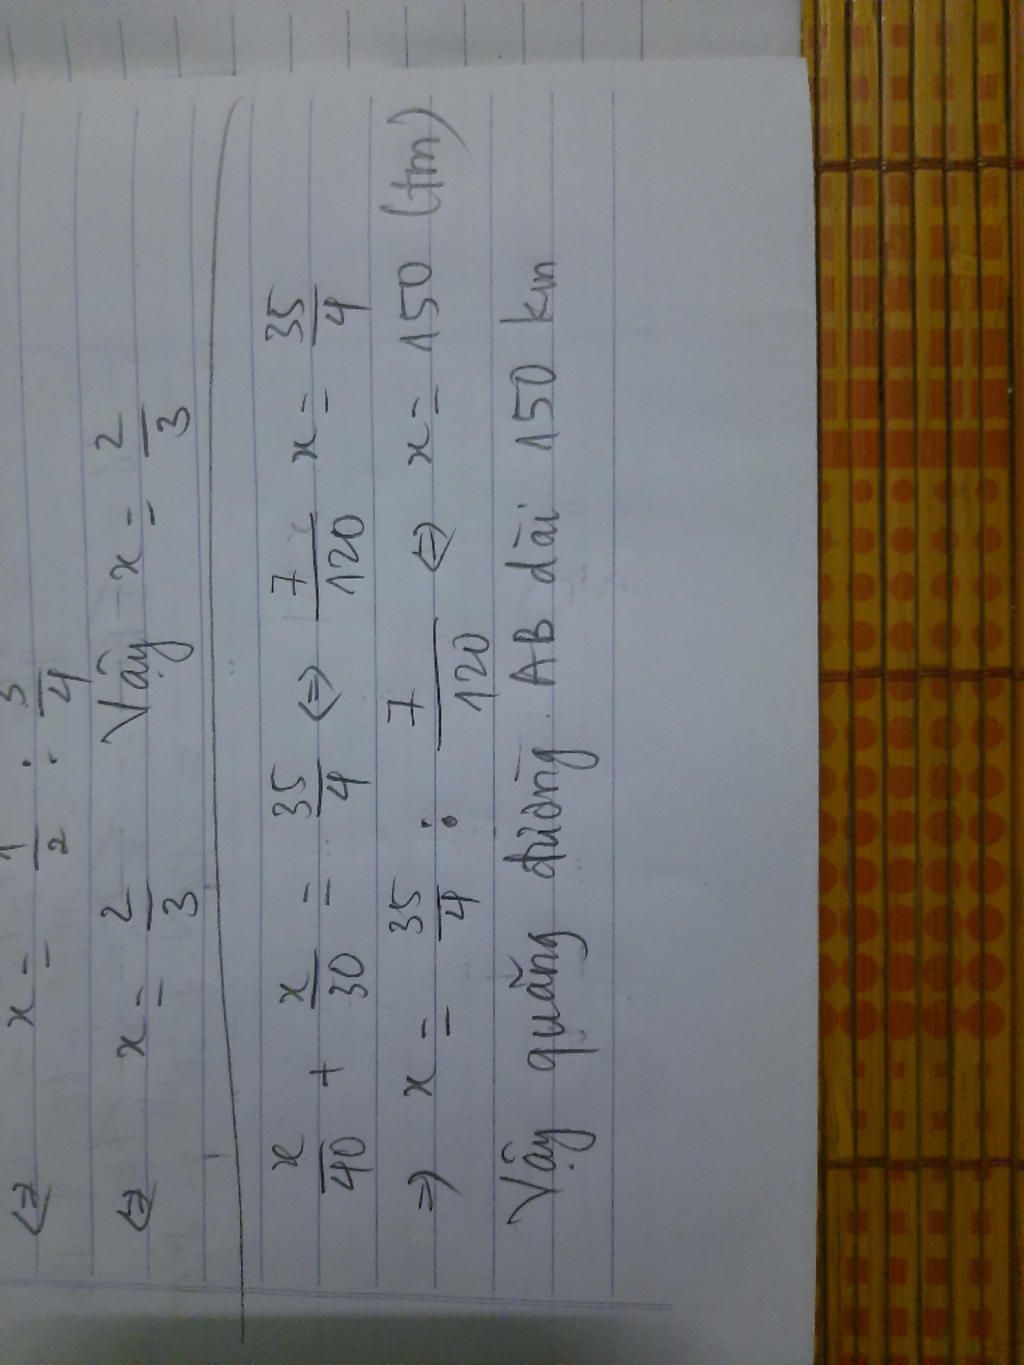 ⇔ x = 1/2 : 3/4
⇔ x = 2/3 Vậy x = 2/3
x/40 + x/30 = 35/4 ⇔ 7/120 x = 35/4
⇒ x = 35/4 : 7/120 ⇔ x = 150 (tm)
Vậy quãng đường AB dài 150 km